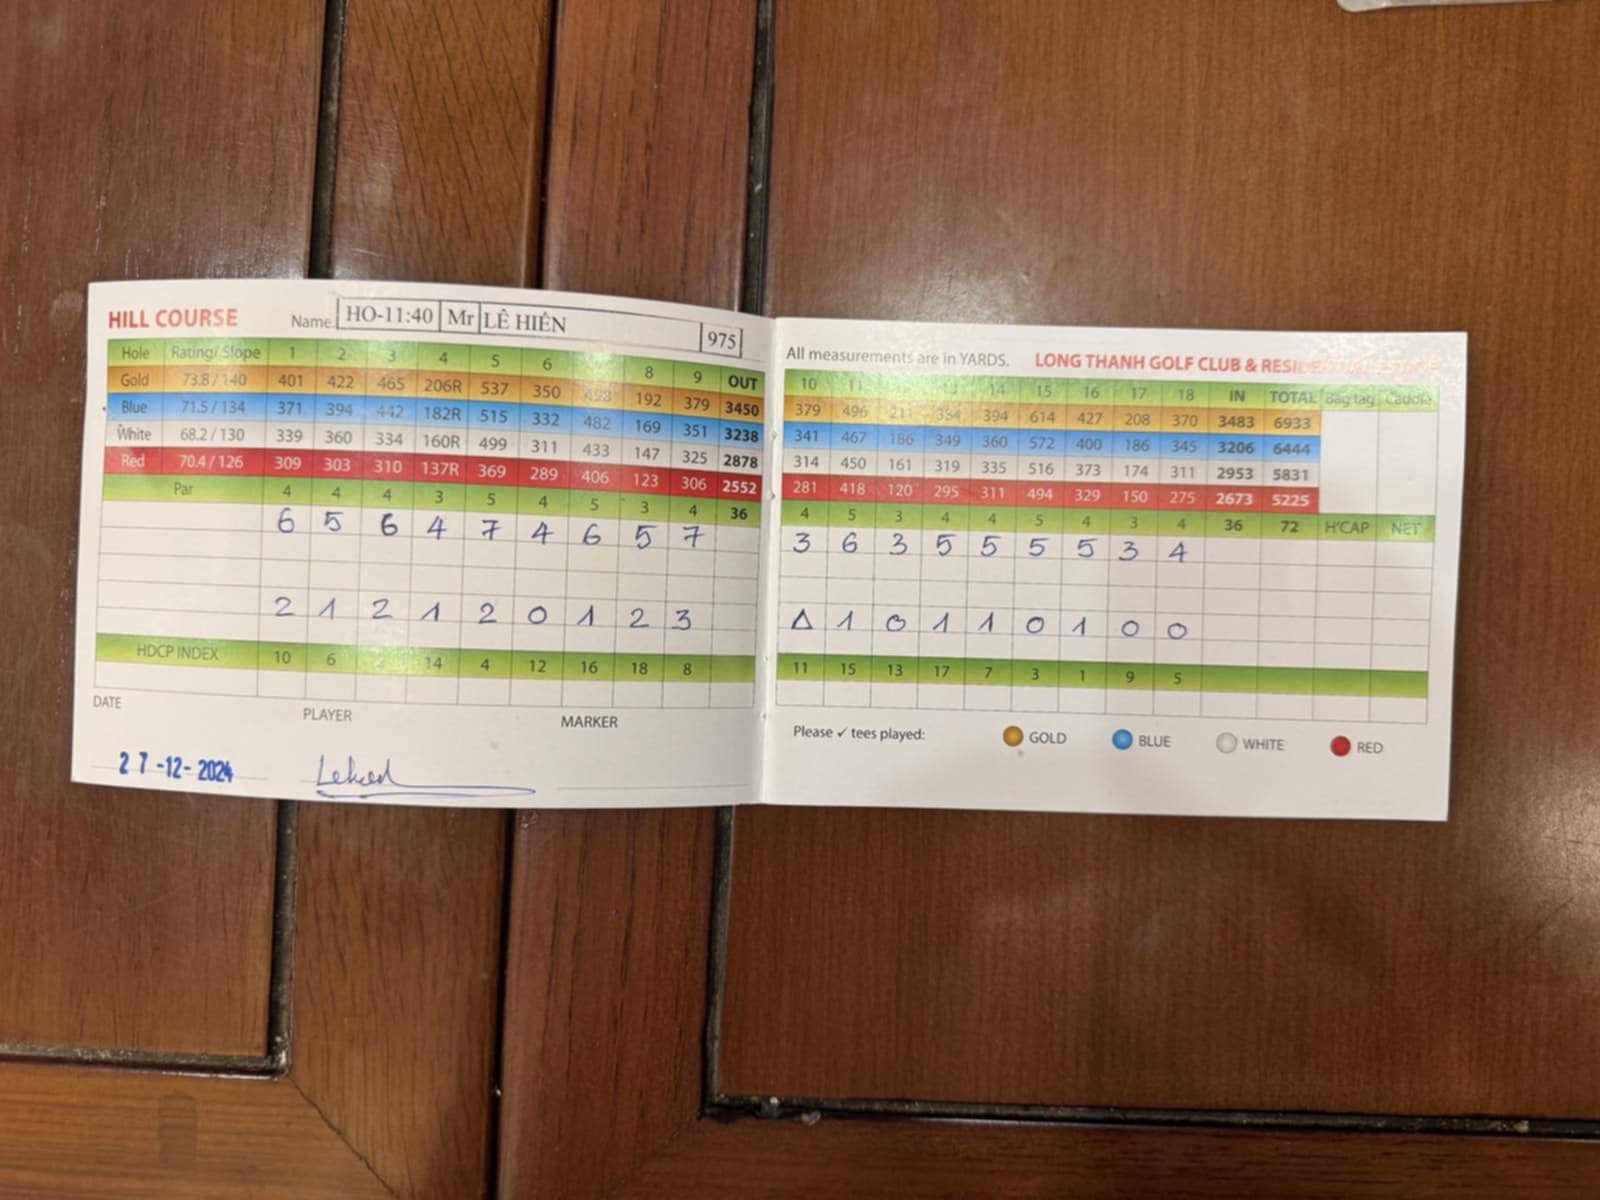 HILL COURSE Name. HO-11:40 Mr LÊ HIỀN 975
Hole Rating/ Slope 1 2 3 4 5 6 8 9 OUT
Gold 73.8 / 140 401 422 465 206R 537 350 498 192 379 3450
Blue 71.5 / 134 371 394 442 182R 515 332 482 169 351 3238
White 68.2 / 130 339 360 334 160R 499 311 433 147 325 2878
Red 70.4 / 126 309 303 310 137R 369 289 406 123 306 2552
Par 4 4 4 3 5 4 5 3 4 36
6 5 6 4 7 4 6 5 7
2 1 2 1 2 0 1 2 3
HDCP INDEX 10 6 2 14 4 12 16 18 8
DATE PLAYER MARKER
27-12-2024
All measurements are in YARDS. LONG THANH GOLF CLUB &
10 11 13 14 15 16 17 18 IN TOTAL Bag tag Caddie
379 496 211 384 394 614 427 208 370 3483 6933
341 467 186 349 360 572 400 186 345 3206 6444
314 450 161 319 335 516 373 174 311 2953 5831
281 418 120 295 311 494 329 150 275 2673 5225
4 5 3 4 4 5 4 3 4 36 72 H'CAP NET
3 6 3 5 5 5 5 3 4
Δ 1 0 1 1 0 1 0 0
11 15 13 17 7 3 1 9 5
Please ✓ tees played: GOLD BLUE WHITE RED